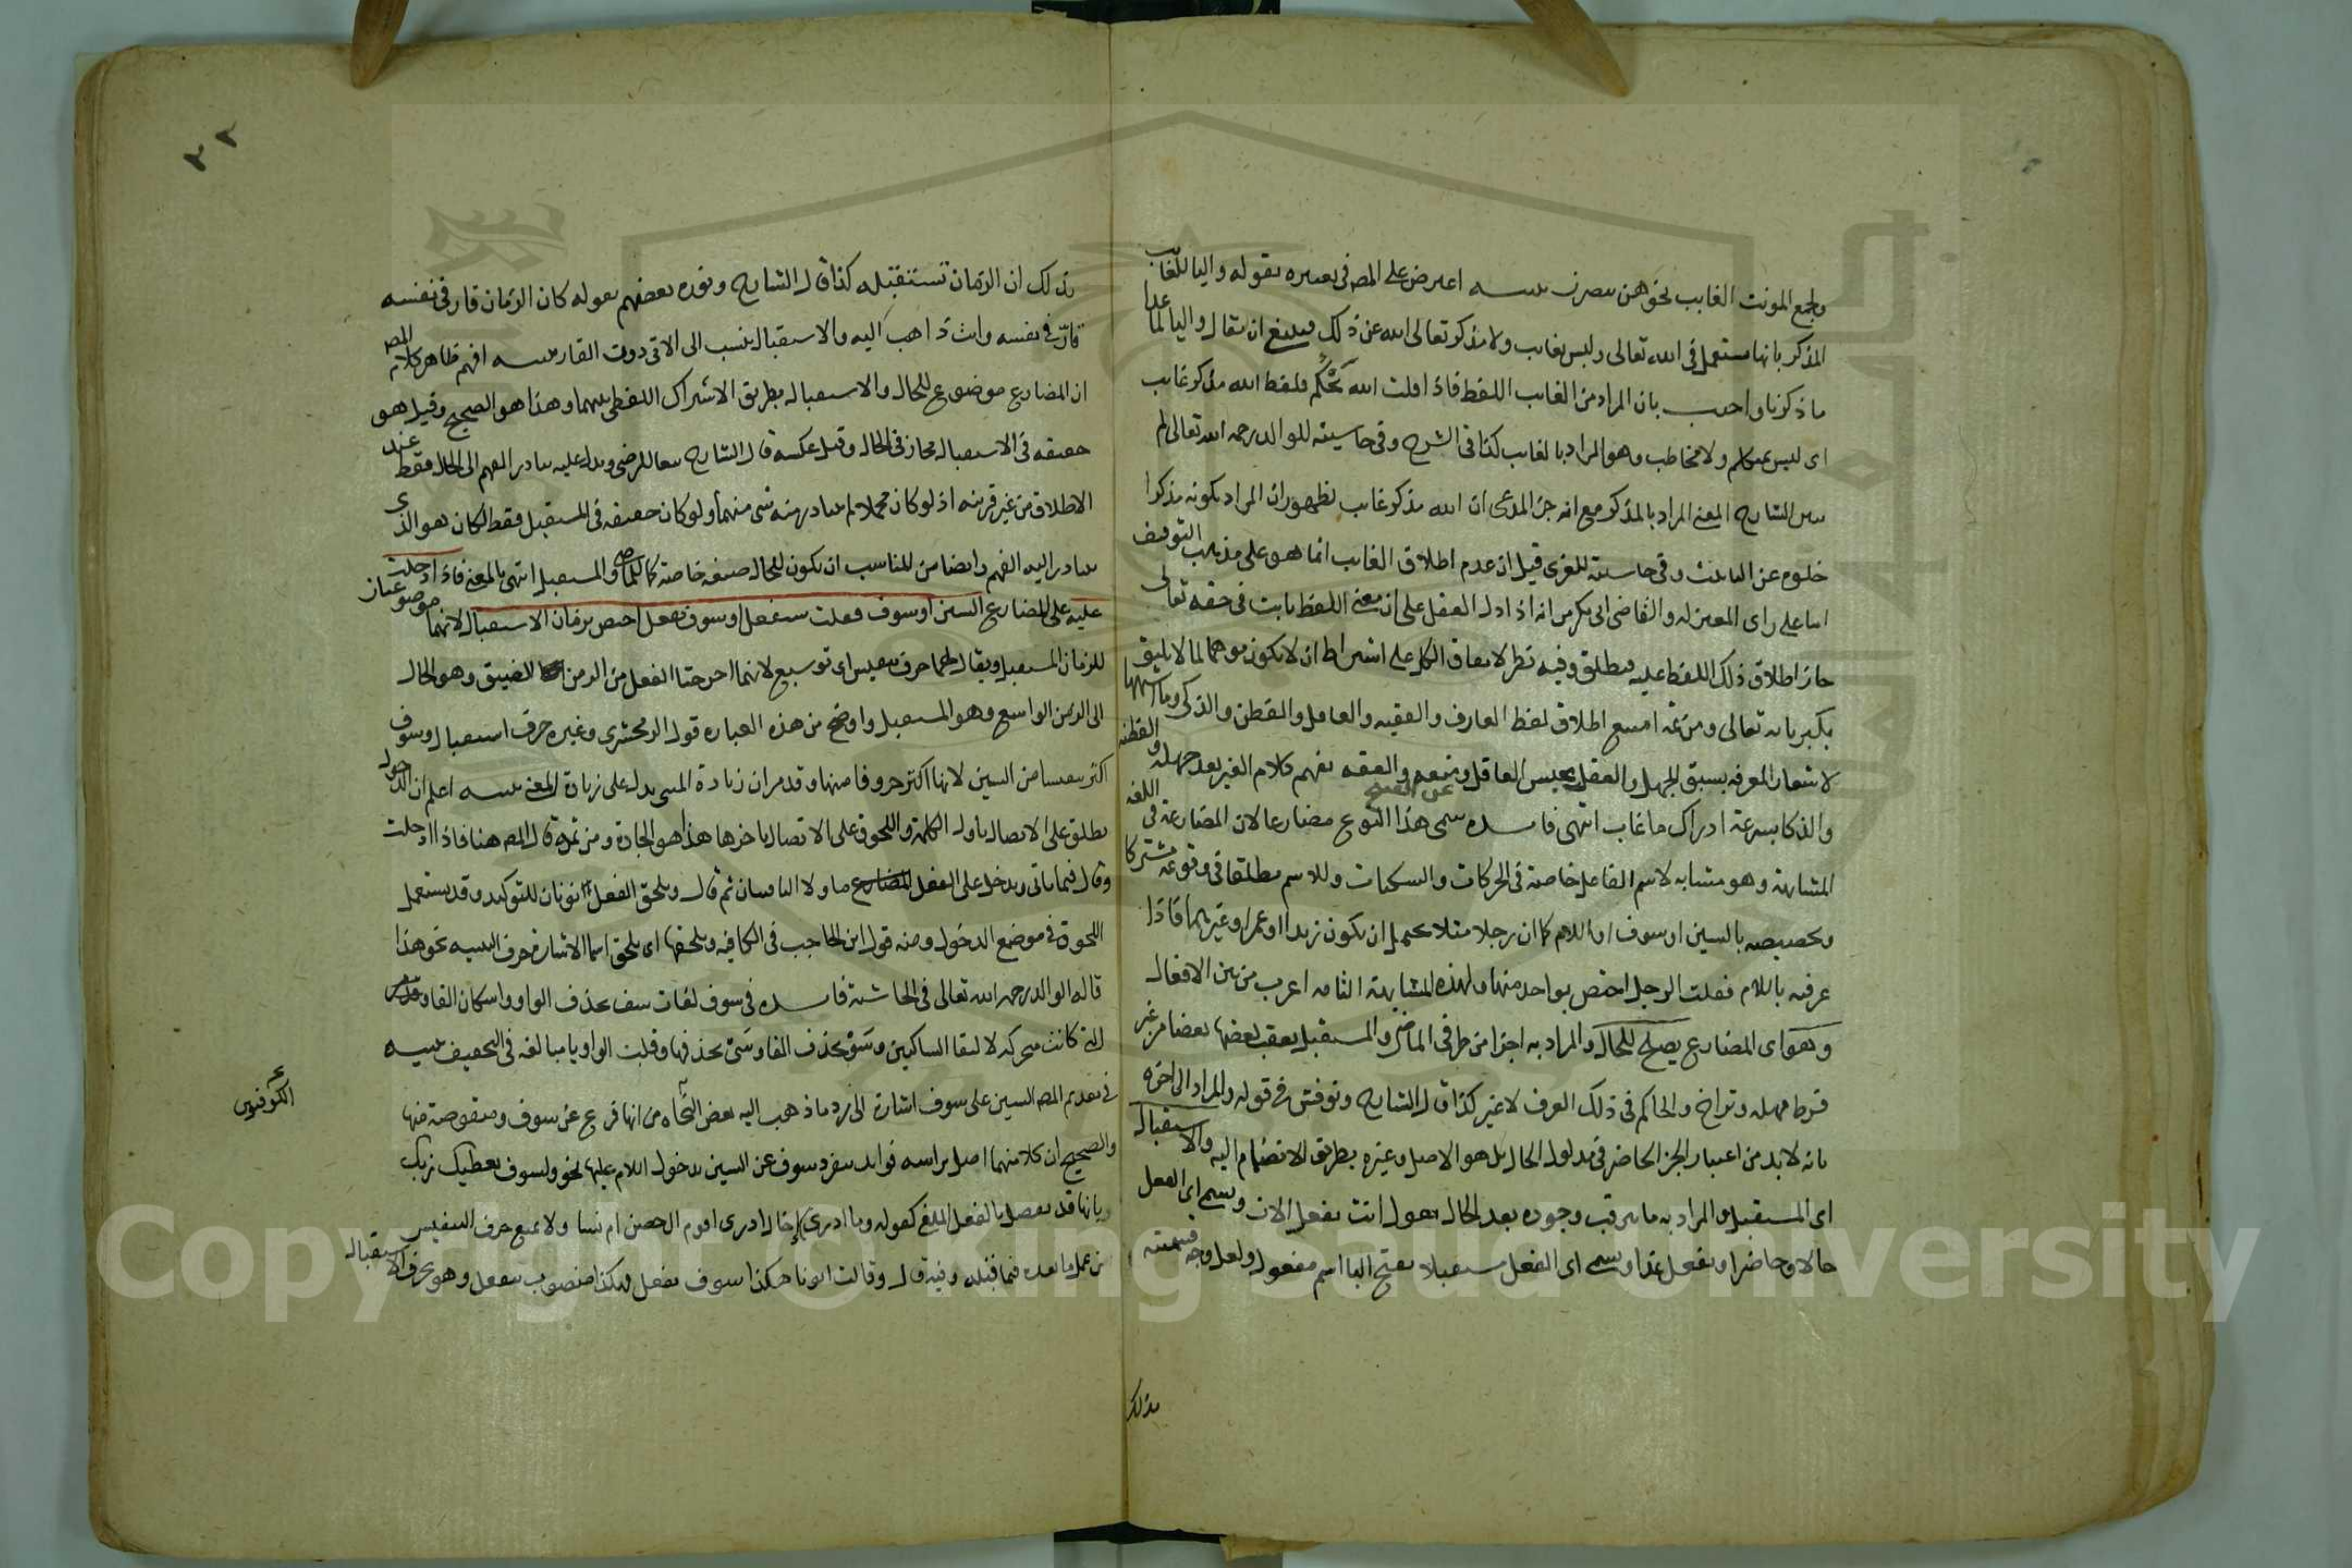 ولجمع المونث الغايب نحو هن ينصرن تنبيه اعترض على المصـ في تعبيره بقوله واليا للغايب
المذكر بانها تستعمل في الله تعالى وليس بغايب ولا مذكر تعالى الله عن ذلك فينبغي ان يقال واليا لما عدا
ما ذكرنا واجيب بان المراد من الغايب اللفظ فاذا قلت الله يحكم فلفظ الله مذكر غايب
اى ليس بمتكلم ولا مخاطب وهو المراد بالغايب كذا في الشرح وفي حاشيته للوالد رحمه الله تعالى لم
يبين الشارح المعنى المراد بالمذكر مع انه جز المدعى ان الله مذكر غايب لظهور ان المراد بكونه مذكرا
خلوه عن التانيث وفي حاشيته للغزى قيل ان عدم اطلاق الغايب انما هو على مذهب التوقيف
اما على راى المعتزله والقاضى ابى بكر من انه اذا دل العقل على ان معنى اللفظ ثابت في حقه تعالى
جاز اطلاق ذلك اللفظ عليه فيطلق وفيه نظر لاتفاق الكل على اشتراط ان لا يكون موهما لما لا يليق
بكبريائه تعالى ومن ثمه امتنع اطلاق لفظ العارف والفقيه والعاقل والفطن والذكى وما اشبهها
لاشعار المعرفه بسبق الجهل والعقل بحبس العاقل ومنعه والفقه بفهم كلام الغير بعد جهله والفطنه
والذكا بسرعة ادراك ما غاب انتهى فايده سمى هذا النوع مضارعا لان المضارعة في اللغه
المشابهة وهو مشابه لاسم الفاعل خاصة في الحركات والسكنات وللاسم مطلقا في وقوعه مشتركا
وتخصيصه بالسين او سوف او اللام كما ان رجلا مثلا يحتمل ان يكون زيدا او عمرا وغيرهما فاذا
عرفته باللام فقلت الرجل اختص بواحد منها ولهذه المشابهة التامه اعرب من بين الافعال
وهو اى المضارع يصلح للحال والمراد به اجزا من طرفى الماضى والمستقبل يعقب بعضها بعضا من غير
فرط مهله وتراخ والحاكم في ذلك العرف لا غير كذا قال الشارح ونوقش في قوله والمراد الى اخره
بانه لا بد من اعتبار الجز الحاضر في مدلول الحال بل هو الاصل وغيره بطريق الانضمام اليه والاستقبال
اى المستقبل والمراد به ما يترقب وجوده بعد الحال تقول انت تفعل الان ويسمى اى الفعل
حالا وحاضرا وتفعل غدا ويسمى اى الفعل مستقبلا بفتح البا اسم مفعول ولعل وجه تسميته
بذلك
٢٢
بذلك ان الزمان تستقبله كذا قال الشارح ونوره بعضهم بقوله كان الزمان قار في نفسه
قار في نفسه وانت ذاهب اليه والاستقبال ينسب الى الاتى دون القار تنبيه افهم ظاهر كلام المصـ
ان المضارع موضوع للحال والاستقبال بطريق الاشتراك اللفظى بينهما وهذا هو الصحيح وقيل هو
حقيقه في الاستقبال مجاز في الحال وقيل عكسه قال الشارح تبعا للرضى ويدل عليه تبادر الفهم الى الحال فقط عند
الاطلاق من غير قرينه اذ لو كان مجملا لم يتبادر منه شى منهما ولو كان حقيقه في المستقبل فقط لكان هو الذى
يتبادر اليه الفهم وايضا من المناسب ان يكون للحال صيغه خاصة كالماضى والمستقبل انتهى بالمعنى فاذا ادخلت
عليه على المضارع السين او سوف فقلت سيفعل او سوف يفعل اختص بزمان الاستقبال لانهما موضوعتان
للزمان المستقبل ويقال لهما حرف تنفيس اى توسيع لانهما اخرجتا الفعل من الزمن الضيق وهو الحال
الى الزمن الواسع وهو المستقبل واوضح من هذه العباره قول الزمخشرى وغيره حرف استقبال وسوف
اكثر تنفيسا من السين لانها اكثر حروفا منها وقد مر ان زيادة المبنى يدل على زيادة المعنى تنبيه اعلم ان الدخول
يطلق على الاتصال باول الكلمه واللحوق على الاتصال باخرها هذا هو الجادة ومن ثمه قال المصـ هنا فاذا ادخلت
وقال فيما ياتى ويدخل على الفعل المضارع ما ولا النافيتان ثم قال ويلحق الفعل نونان للتوكيد وقد يستعمل
اللحوق في موضع الدخول ومنه قول ابن الحاجب في الكافيه ويلحقها اى يلحق اسما الاشارة حرف التنبيه نحو هذا
قاله الوالد رحمه الله تعالى في الحاشية فايده في سوف لغات سف بحذف الواو واسكان الفا
التى كانت متحركه لالتقا الساكنين وسو بحذف الفا وسى بحذفها وقلبت الواو يا مبالغه في التخفيف تنبيه
في تقديم المصـ السين على سوف اشارة الى رد ما ذهب اليه بعض النحاه من انها فرع عن سوف ومنقوصة منها
الكوفيون
والصحيح ان كلا منهما اصل براسه فوايد تنفرد سوف عن السين بدخول اللام عليها نحو ولسوف يعطيك ربك
وبانها قد تفصل بالفعل الملغى كقوله وما ادرى وسوف إخال ادرى اقوم ال حصن ام نسا ولا يمنع حرف التنفيس
من عمل ما بعده فيما قبله وقالت ابونا هكذا سوف يفعل فهكذا منصوب بيفعل وهو بحرف الاستقبال